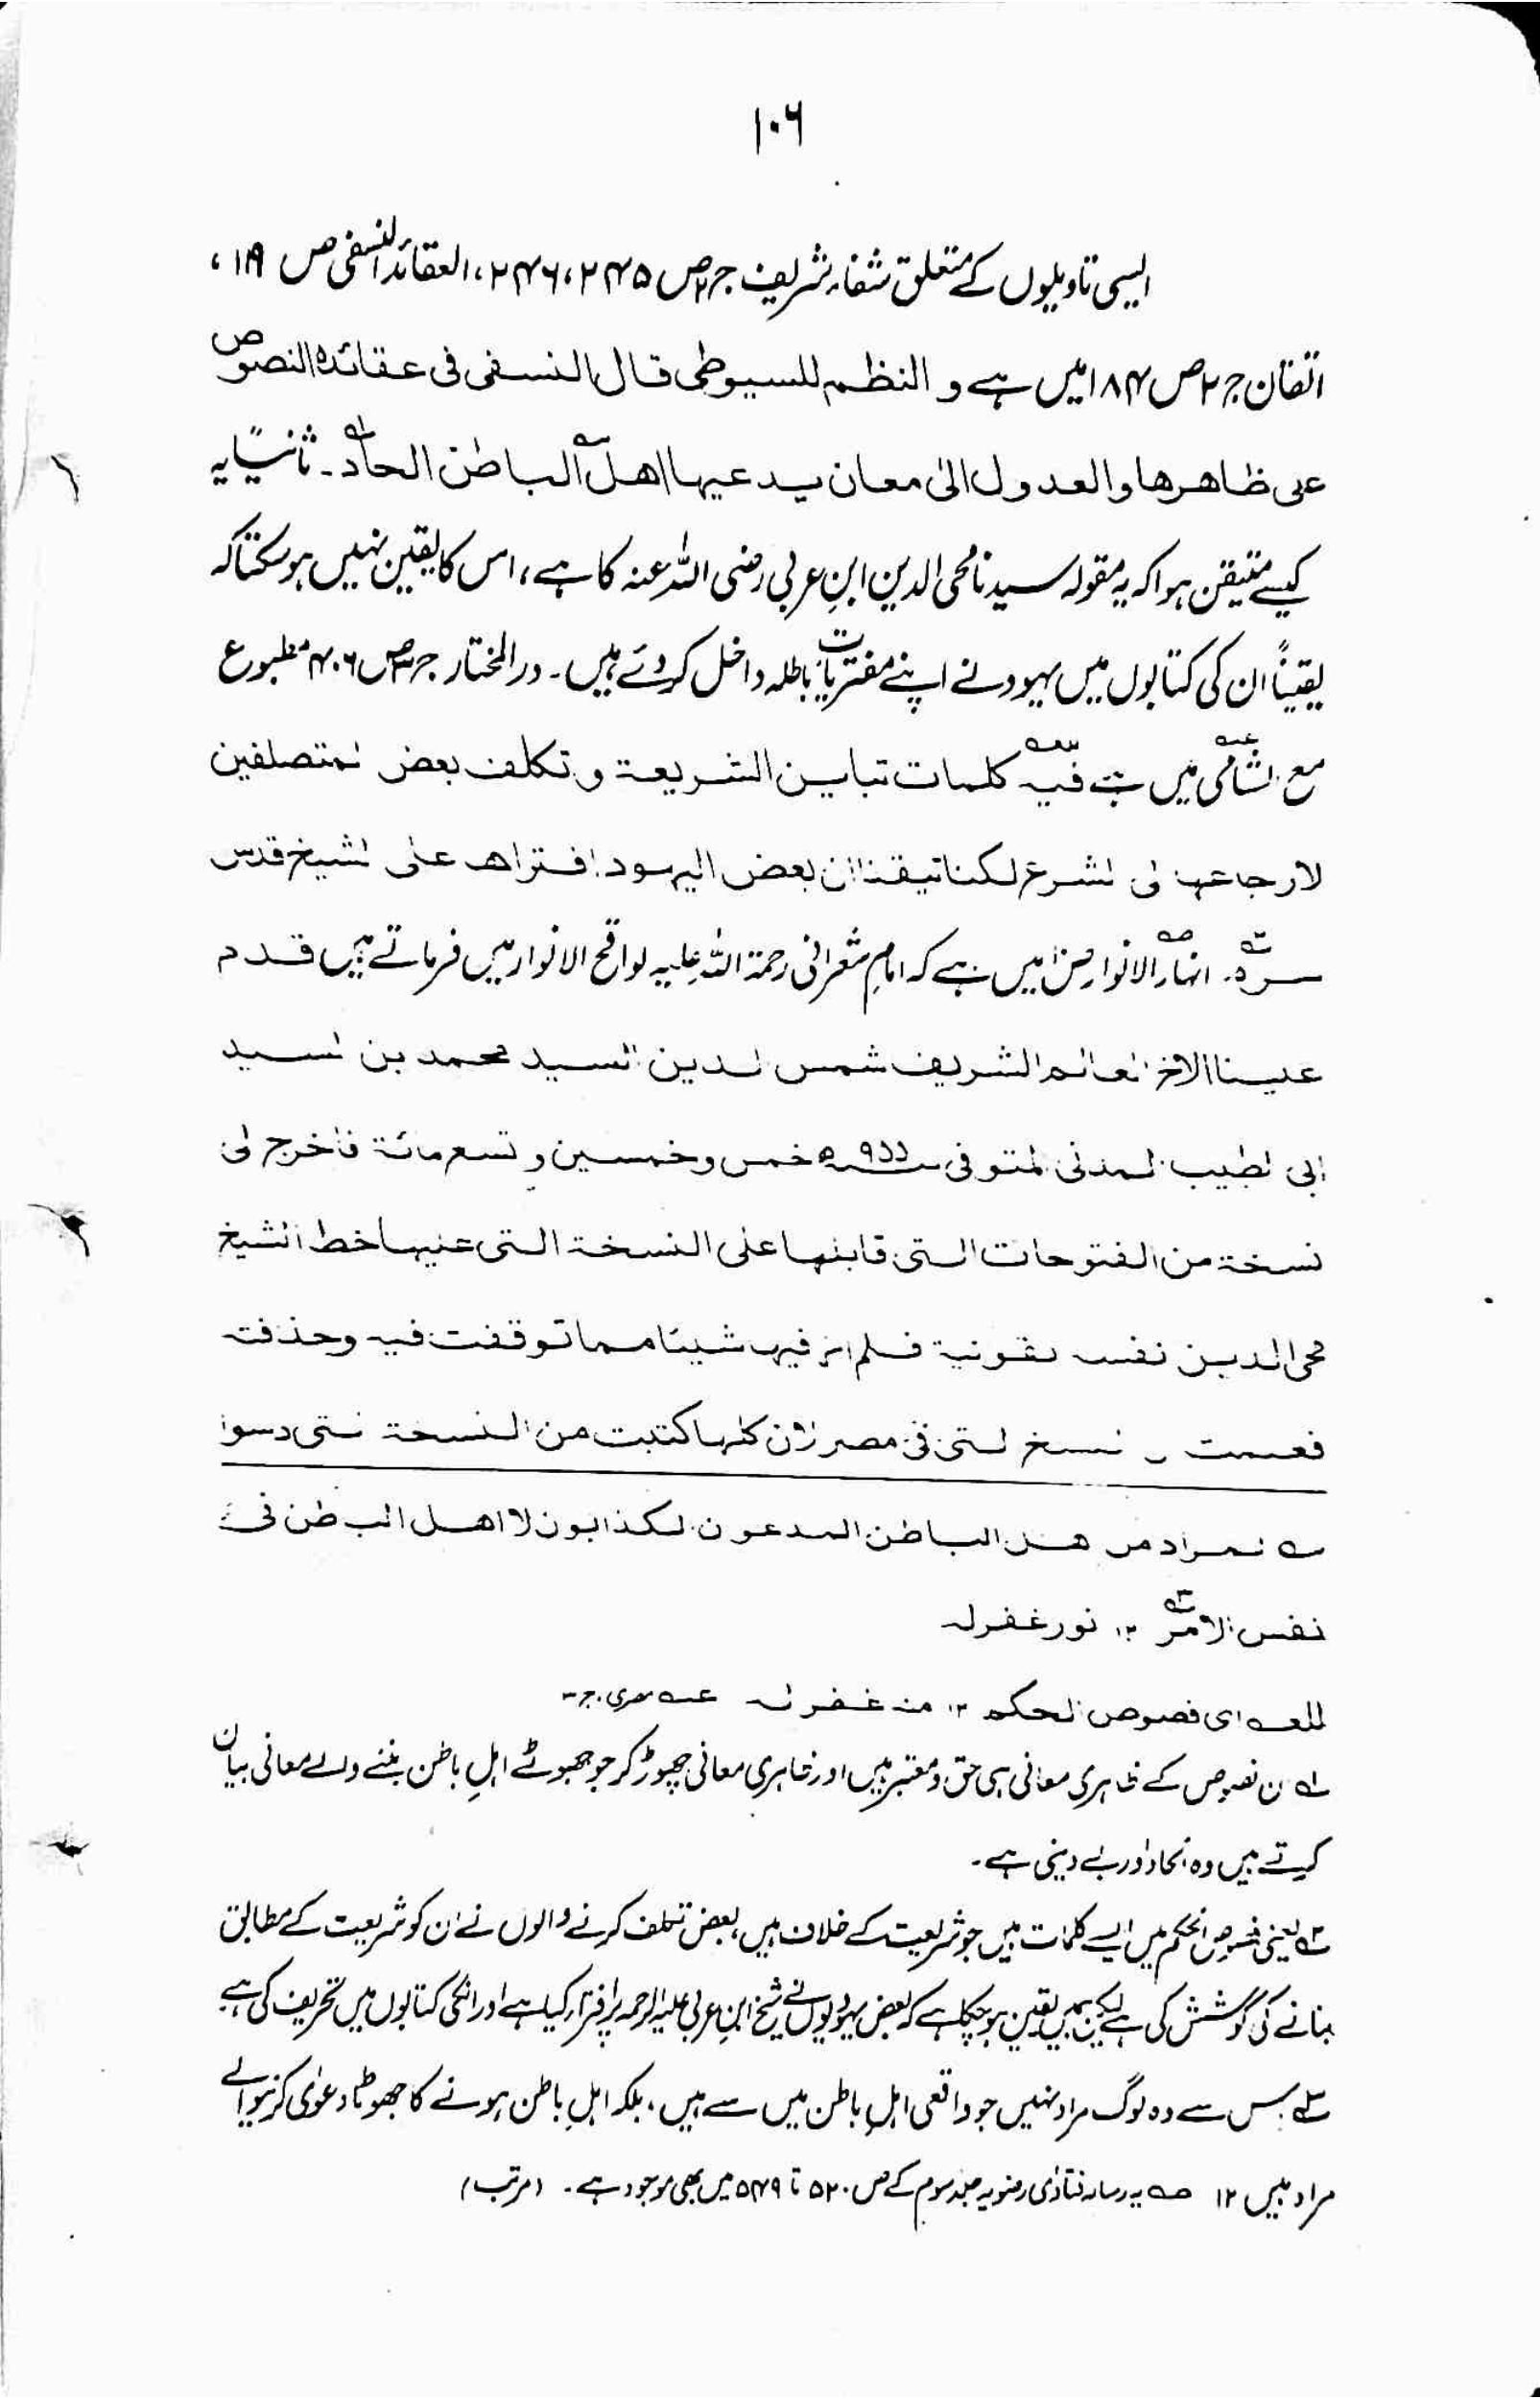 ۱۰۶
ایسی تاویلوں کے متعلق شفاء شریف ج۲ص ۲۴۵، ۲۴۶، العقائد النسفی ص ۱۱۹،
اتقان ج۲ ص ۱۸۴ میں ہے و النظم للسیوطی قال النسفی فی عقائدہ النصوص
علی ظاھرھا والعدول الی معان یدعیھا اھل الباطن الحاد۔ ثانیًا یہ
کیسے متیقن ہوا کہ یہ مقولہ سیدنا محی الدین ابنِ عربی رضی اللہ عنہ کا ہے، اس کا یقین نہیں ہوسکتا کہ
یقیناً ان کی کتابوں میں یہود نے اپنے مفتریات باطلہ داخل کر دئے ہیں۔ درالمختار ج۳ص ۴۰۶ مطبوع
مع الشامی میں ہے فیہ کلمات تباین الشریعۃ و تکلف بعض المتصلفین
لارجاعھا الی الشرع لکنا تیقنا ان بعض الیھود افتراھا علی الشیخ قدس
سرہ۔ انہار الانوار ص میں ہے کہ امام شعرانی رحمۃ اللہ علیہ لواقح الانوار میں فرماتے ہیں قدم
علینا الاخ العالم الشریف شمس الدین السید محمد بن السید
ابی الطیب المدنی المتوفی ۹۵۵ھ خمس وخمسین و تسع مائۃ فاخرج لی
نسخۃ من الفتوحات التی قابلھا علی النسخۃ التی علیھا خط الشیخ
محی الدین نفسہ بقونیۃ فلم ار فیھا شیئا مما توقفت فیہ وحذفتہ
فعلمت ان النسخ التی فی مصر الان کلھا کتبت من النسخۃ التی دسوا
سه المراد من اھل الباطن المدعون الکذابون لا اھل الباطن فی
نفس الامر ۱۲ نور غفرلہ
للعه ای فصوص الحکم ۱۲ منہ غفرلہ عه ج۳
لہ ان نصوص کے ظاہری معانی ہی حق و معتبر ہیں اور ظاہری معانی چھوڑ کر جو جھوٹے اہلِ باطن بننے والے معانی بیان
کرتے ہیں وہ الحاد اور بے دینی ہے۔
۲ہ یعنی فصوص الحکم میں ایسے کلمات ہیں جو شریعت کے خلاف ہیں، بعض تکلف کرنے والوں نے ان کو شریعت کے مطابق
بنانے کی کوشش کی ہے لیکن ہمیں یقین ہوچکا ہے کہ بعض یہودیوں نے شیخ ابنِ عربی علیہ الرحمہ پر افتراء کیا ہے اور انکی کتابوں میں تحریف کی ہے
۳ہ جس سے وہ لوگ مراد نہیں جو واقعی اہلِ باطن میں سے ہیں، بلکہ اہلِ باطن ہونے کا جھوٹا دعوٰی کرنیوالے
مراد ہیں ۱۲ صه یہ رسالہ فتاوٰی رضویہ جلد سوم کے ص ۵۲۰ تا ۵۴۹ میں بھی موجود ہے۔ (مرتب)